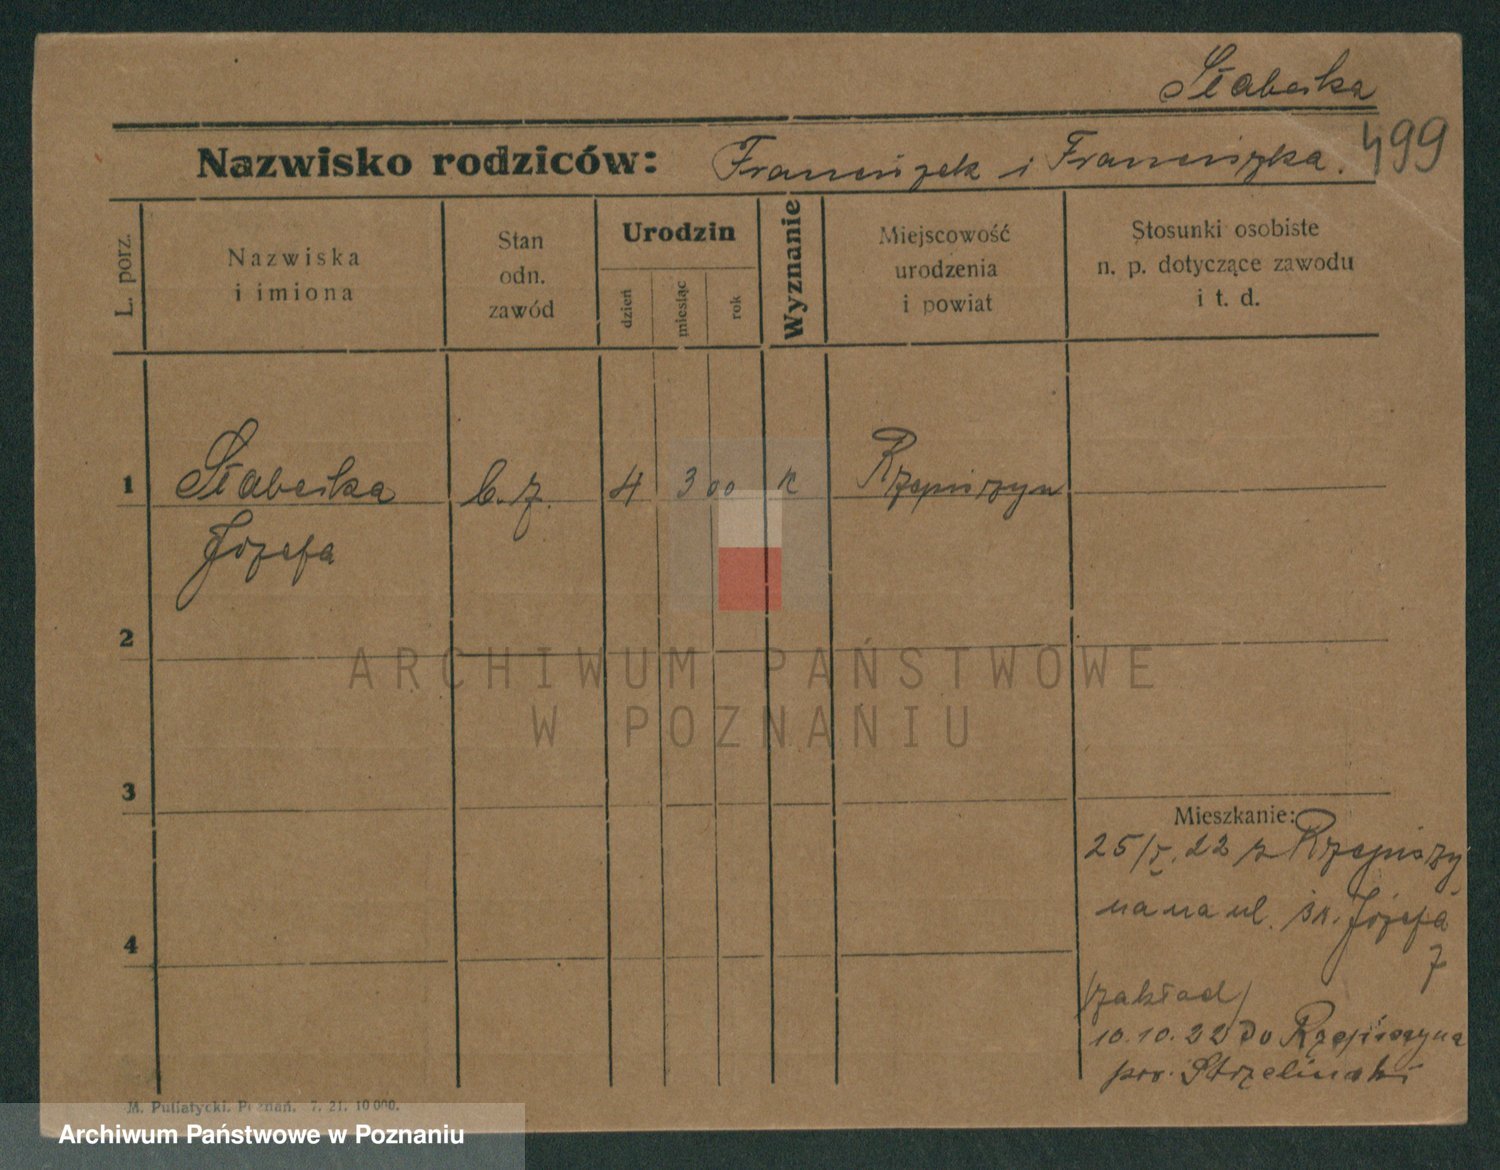 Słaboska
499
Nazwisko rodziców: Franciszek i Franciszka.
L. porz.
Nazwiska
i imiona
Stan
odn.
zawód
Urodzin
dzień
miesiąc
rok
Wyznanie
Miejscowość
urodzenia
i powiat
Stosunki osobiste
n. p. dotyczące zawodu
i t. d.
1 b. z. 4 3 00 k Rzepiszyn
Józefa
2
3
4
Mieszkanie:
25/V. 22 z Rzepiszy
na na ul. św. Józefa
7
/zakład/
10.10.22 do Rzepiszyna
pow. Strzeliński
M. Putiatycki. Poznań. 7. 21. 10 000.
ARCHIWUM PAŃSTWOWE
W POZNANIU
Archiwum Państwowe w Poznaniu